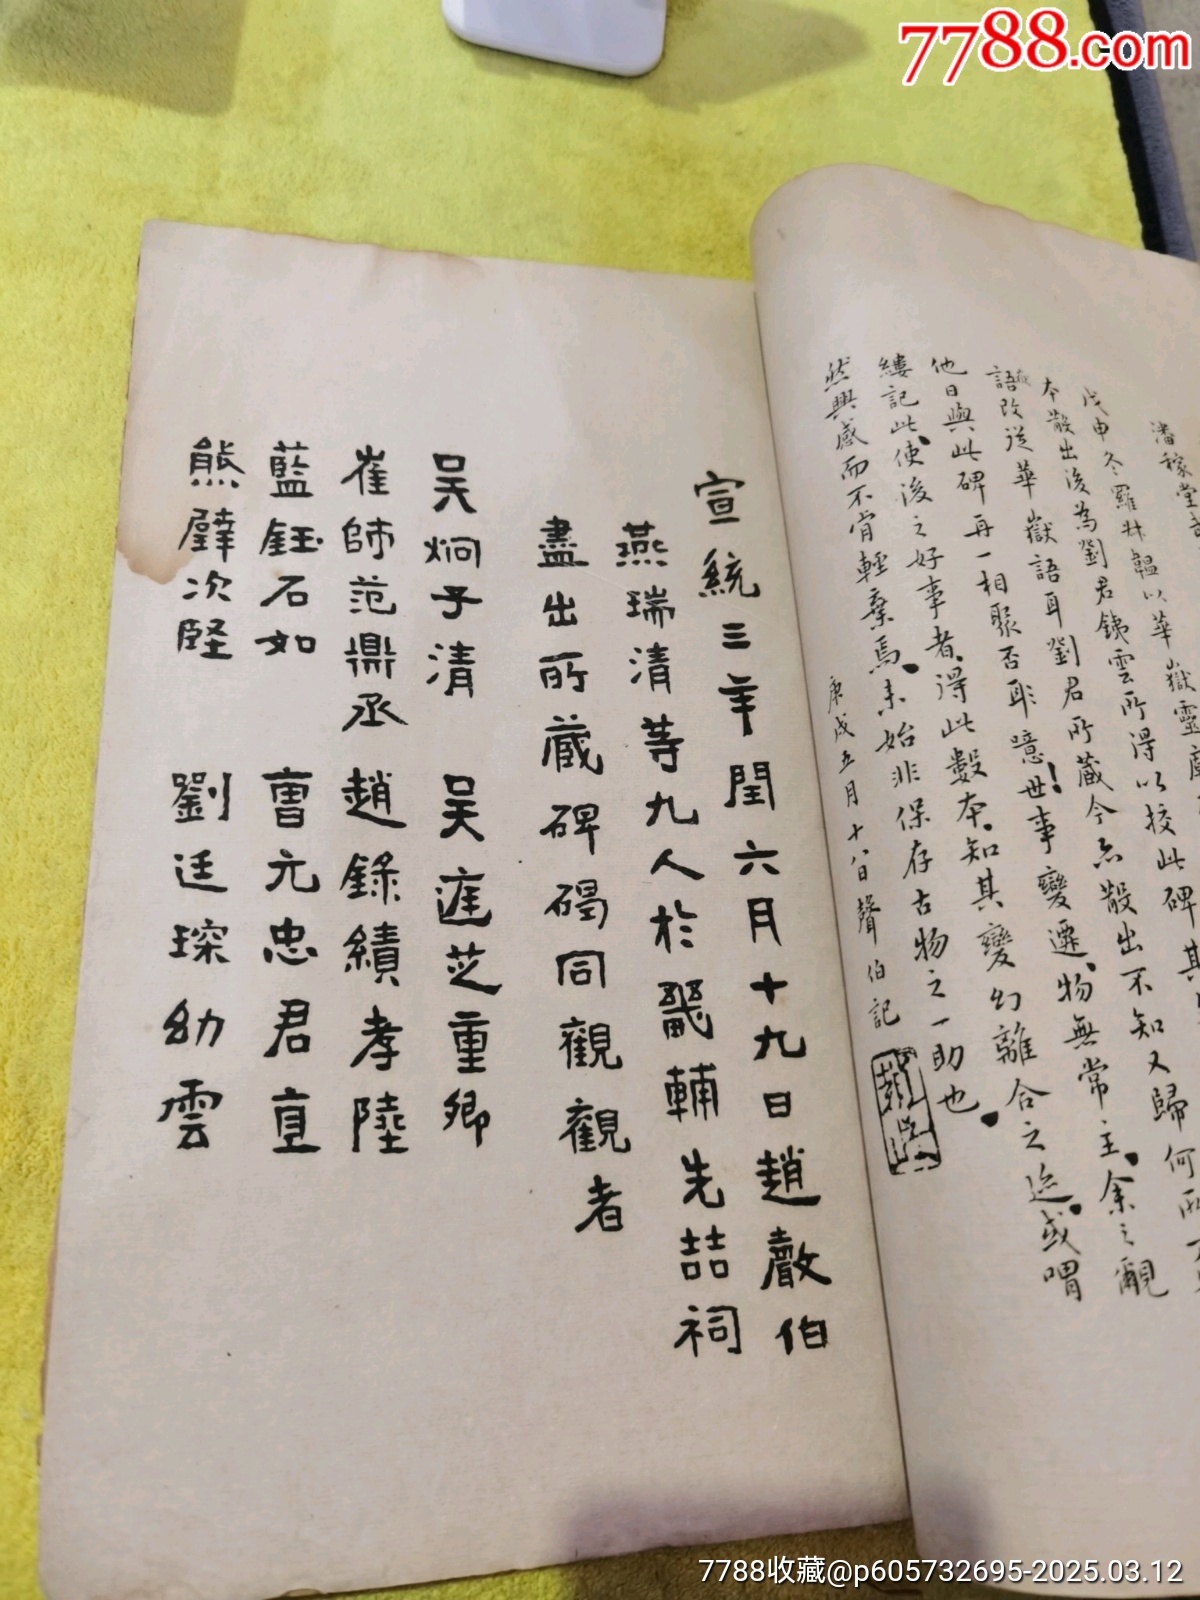 7788.com
潘稼堂
戊申冬羅叔韞以華嶽靈
本散出後為劉君鐵雲所得以校此碑其
語改從華嶽語耳劉君所藏今亦散出不知又歸何所
他日與此碑再一相聚否耶噫世事變遷物無常主余之觀
縷記此使後之好事者得此數本知其變幻離合之迹或喟
然興感而不肯輕棄焉未始非保存古物之一助也
庚戌五月十八日聲伯記
宣統三年閏六月十九日趙聲伯
燕瑞清等九人於畿輔先喆祠
盡出所藏碑碣同觀觀者
吳炯子清 吳蓮芝重卿
崔師范鼎丞 趙錄績孝陸
藍鈺石如 曹元忠君直
熊羅次 劉廷琛幼雲
7788收藏@p605732695-2025.03.12